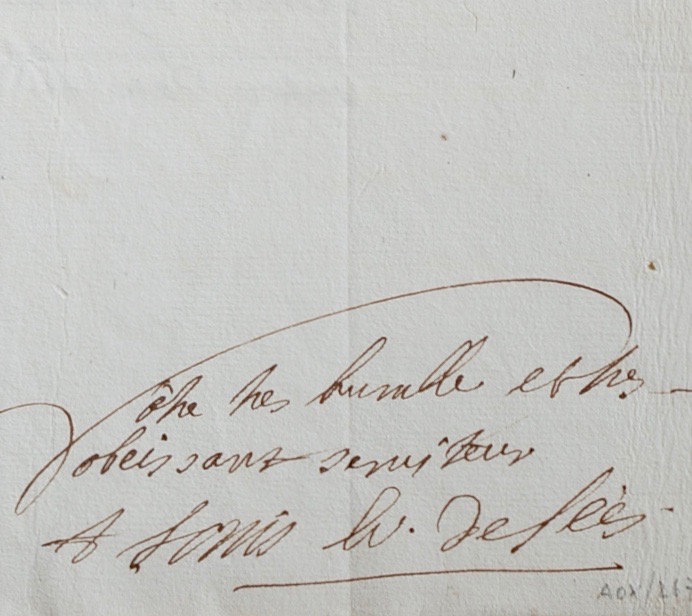 Vôtre tres humble et tres
obeissant serviteur
† Louis Ev. De séés